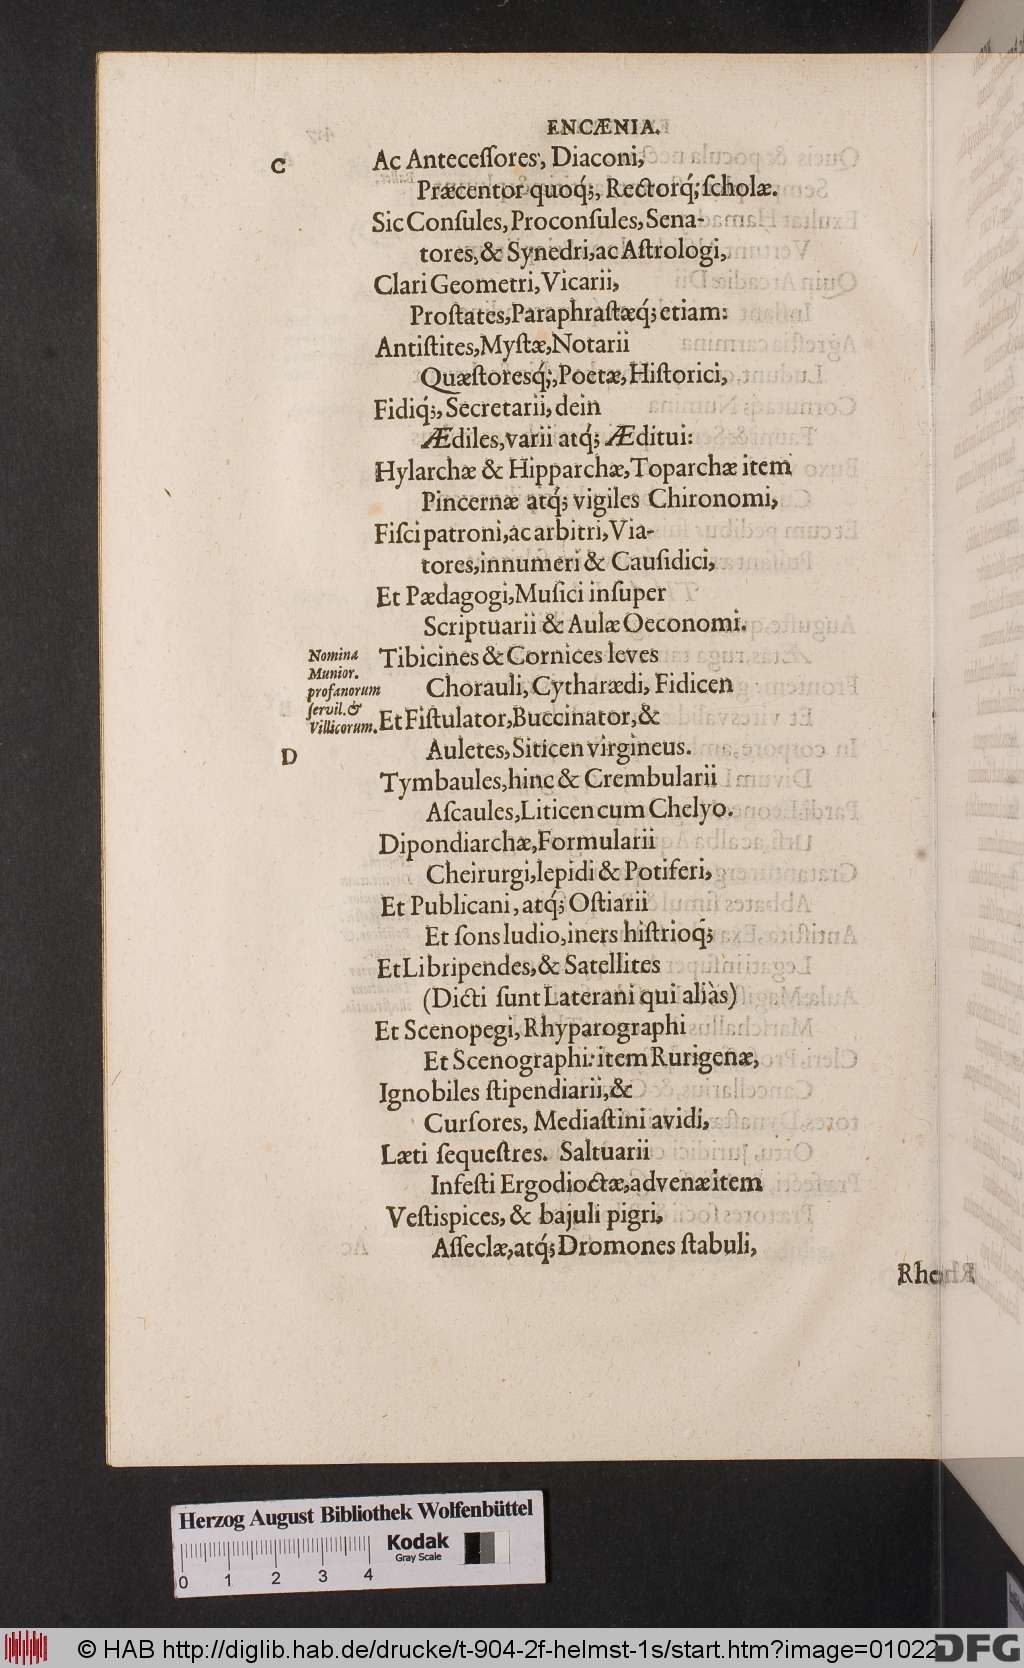 ENCÆNIA.
C
Ac Anteceſſores, Diaconi,
Præcentor quoq́;, Rectorq́; ſcholæ.
Sic Conſules, Proconſules, Sena-
tores, & Synedri, ac Aſtrologi,
Clari Geometri, Vicarii,
Proſtates, Paraphraſtæq́; etiam:
Antiſtites, Myſtæ, Notarii
Quæſtoresq́;, Poetæ, Hiſtorici,
Fidiq́;, Secretarii, dein
Ædiles, varii atq́; Æditui:
Hylarchæ & Hipparchæ, Toparchæ item
Pincernæ atq́; vigiles Chironomi,
Fiſci patroni, ac arbitri, Via-
tores, innumeri & Cauſidici,
Et Pædagogi, Muſici inſuper
Scriptuarii & Aulæ Oeconomi.
Nomina
Munior.
profanorum
ſervil. &
Villicorum.
Tibicines & Cornices leves
Chorauli, Cytharædi, Fidicen
Et Fiſtulator, Buccinator, &
Auletes, Siticen virgineus.
D
Tymbaules, hinc & Crembularii
Aſcaules, Liticen cum Chelyo.
Dipondiarchæ, Formularii
Cheirurgi, lepidi & Potiferi,
Et Publicani, atq́; Oſtiarii
Et ſons ludio, iners hiſtrioq́;
Et Libripendes, & Satellites
(Dicti ſunt Laterani qui aliàs)
Et Scenopegi, Rhyparographi
Et Scenographi: item Rurigenæ,
Ignobiles ſtipendiarii, &
Curſores, Mediaſtini avidi,
Læti ſequeſtres. Saltuarii
Infeſti Ergodioctæ, advenæ item
Veſtiſpices, & bajuli pigri,
Aſſeclæ, atq́; Dromones ſtabuli,
Rho
Herzog August Bibliothek Wolfenbüttel
Kodak
Gray Scale
0 1 2 3 4
© HAB http://diglib.hab.de/drucke/t-904-2f-helmst-1s/start.htm?image=01022
DFG